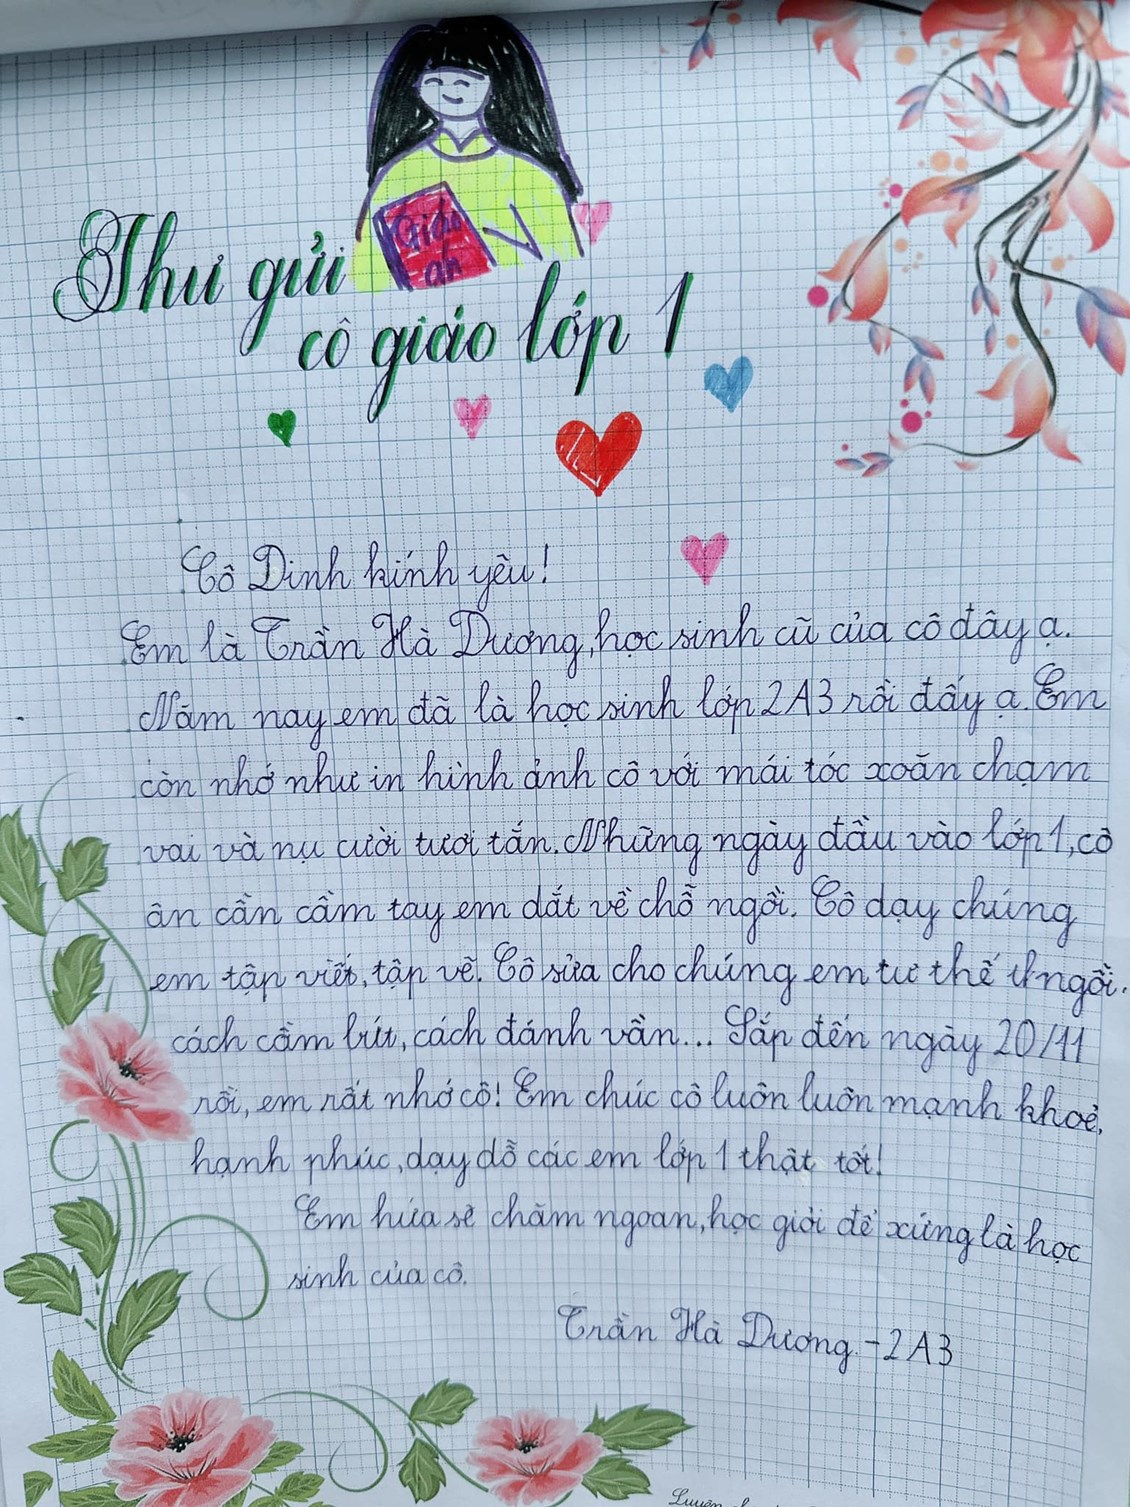 Giáo
án
Thư gửi
cô giáo lớp 1
Cô Dinh kính yêu!
Em là Trần Hà Dương, học sinh cũ của cô đây ạ.
Năm nay em đã là học sinh lớp 2A3 rồi đấy ạ. Em
còn nhớ như in hình ảnh cô với mái tóc xoăn chạm
vai và nụ cười tươi tắn. Những ngày đầu vào lớp 1, cô
ân cần cầm tay em dắt về chỗ ngồi. Cô dạy chúng
em tập viết, tập vẽ. Cô sửa cho chúng em tư thế ngồi.
cách cầm bút, cách đánh vần... Sắp đến ngày 20/11
rồi, em rất nhớ cô! Em chúc cô luôn luôn mạnh khoẻ,
hạnh phúc, dạy dỗ các em lớp 1 thật tốt!
Em hứa sẽ chăm ngoan, học giỏi để xứng là học
sinh của cô.
Trần Hà Dương - 2A3
Luyện